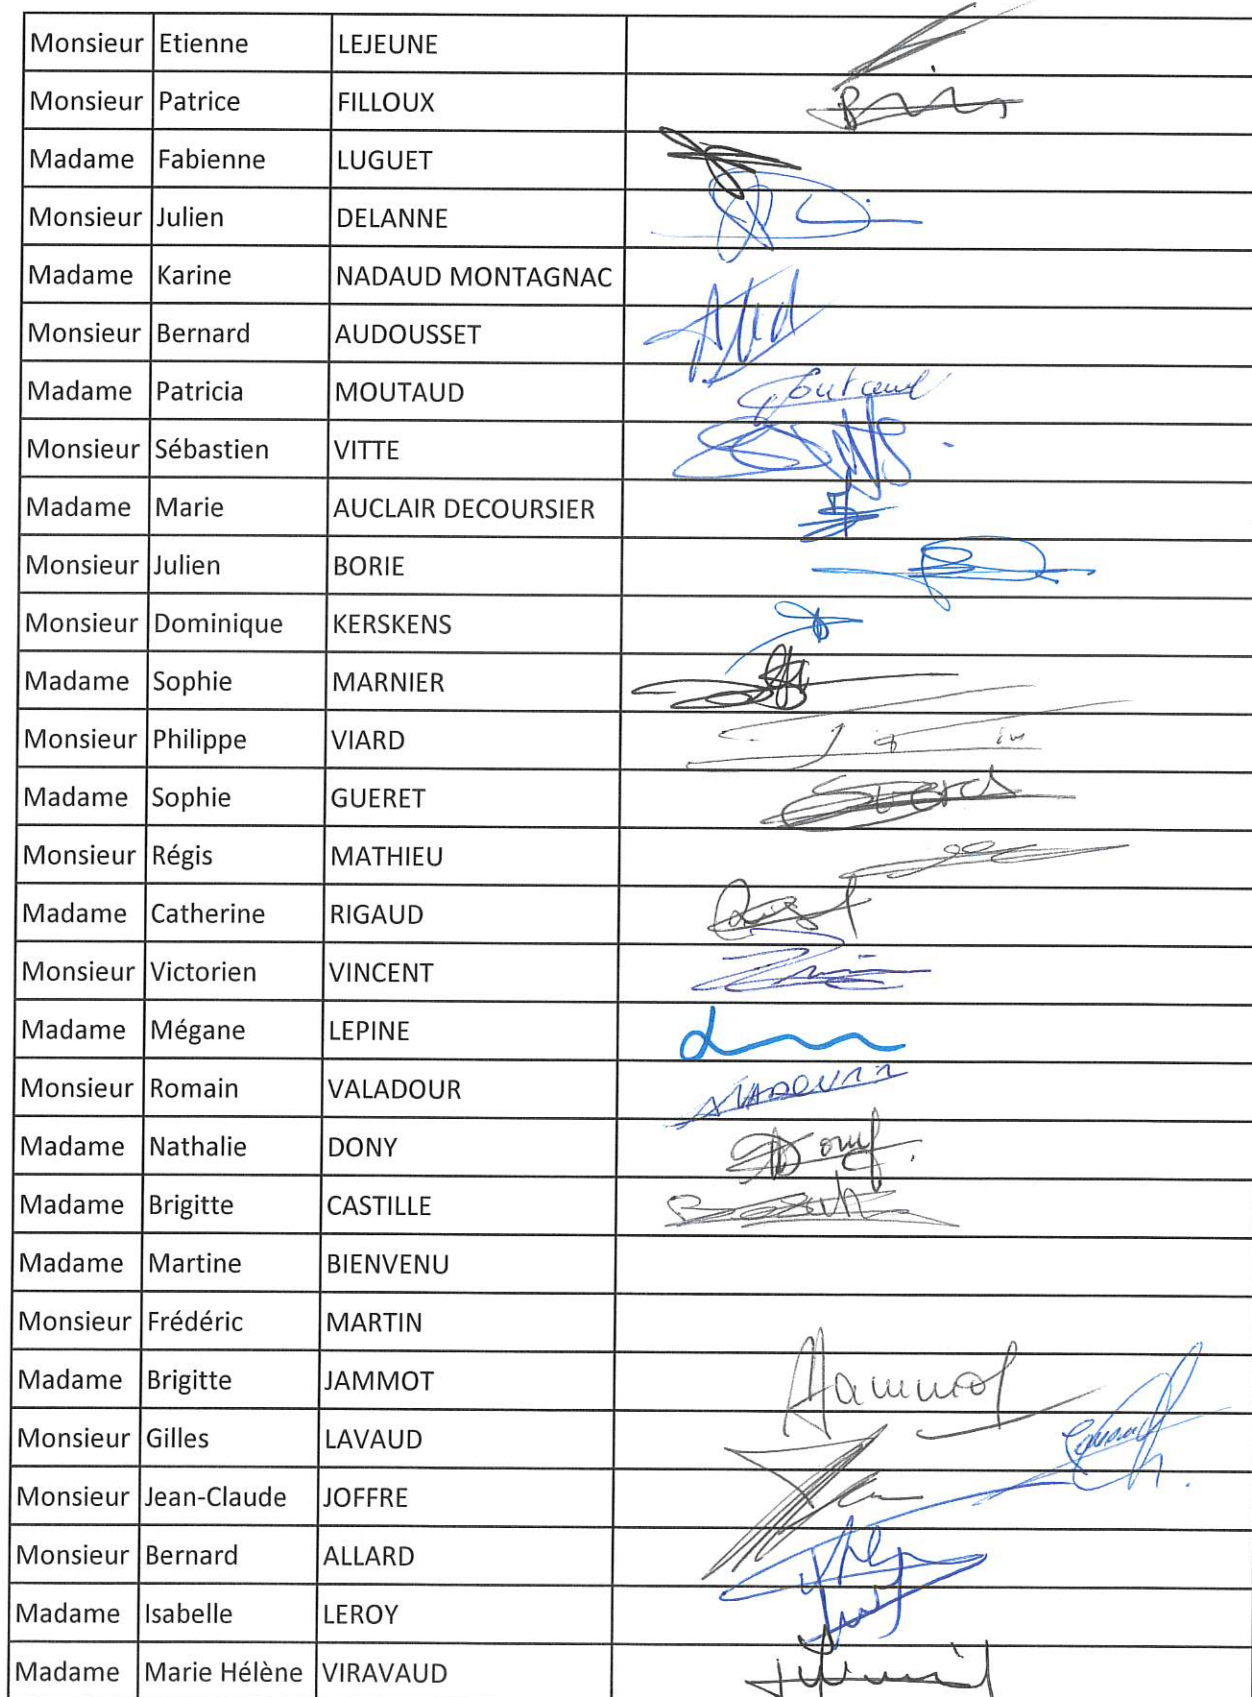 Monsieur Etienne LEJEUNE
Monsieur Patrice FILLOUX
Madame Fabienne LUGUET
Monsieur Julien DELANNE
Madame Karine NADAUD MONTAGNAC
Monsieur Bernard AUDOUSSET
Madame Patricia MOUTAUD
Monsieur Sébastien VITTE
Madame Marie AUCLAIR DECOURSIER
Monsieur Julien BORIE
Monsieur Dominique KERSKENS
Madame Sophie MARNIER
Monsieur Philippe VIARD
Madame Sophie GUERET
Monsieur Régis MATHIEU
Madame Catherine RIGAUD
Monsieur Victorien VINCENT
Madame Mégane LEPINE
Monsieur Romain VALADOUR
Madame Nathalie DONY
Madame Brigitte CASTILLE
Madame Martine BIENVENU
Monsieur Frédéric MARTIN
Madame Brigitte JAMMOT
Monsieur Gilles LAVAUD
Monsieur Jean-Claude JOFFRE
Monsieur Bernard ALLARD
Madame Isabelle LEROY
Madame Marie Hélène VIRAVAUD